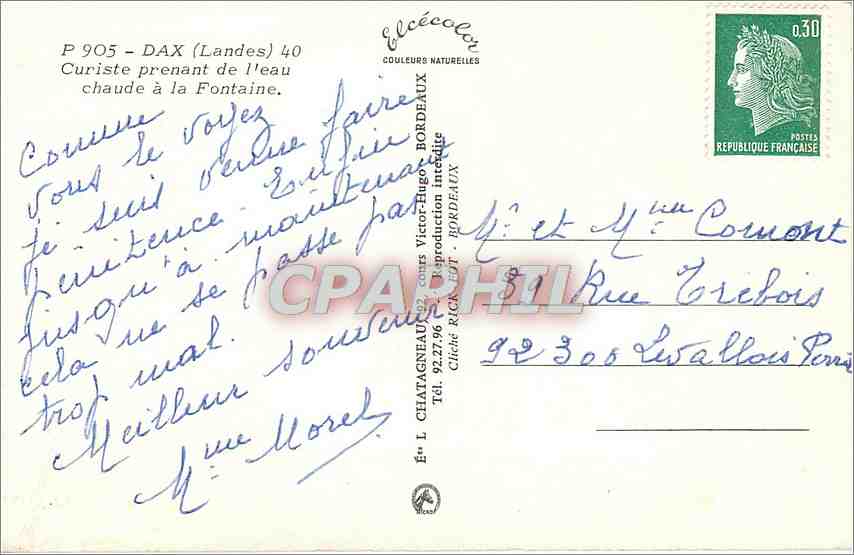 P 905 - DAX (Landes) 40
Curiste prenant de l'eau
chaude à la Fontaine.
Comme
vous le voyez
je suis venue faire
pénitence. Enfin
jusqu'à maintenant
cela ne se passe pas
trop mal.
Meilleur souvenir.
Mme Morel
Elcécolor
COULEURS NATURELLES
Éts L CHATAGNEAU, 92, cours Victor-Hugo BORDEAUX
Tél. 92.27.96 - Reproduction interdite
Cliché RICK - BORDEAUX
0,30
POSTES
REPUBLIQUE FRANÇAISE
Mr et Mme Comont
59 Rue Trébois
92300 Levallois Perret
CPAPHIL